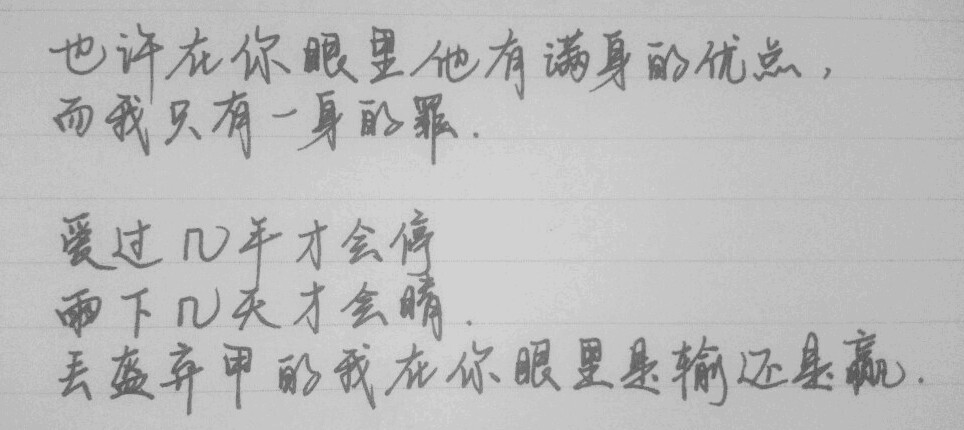 也许在你眼里他有满身的优点，
而我只有一身的罪.
爱过几年才会停
雨下几天才会晴.
丢盔弃甲的我在你眼里是输还是赢.